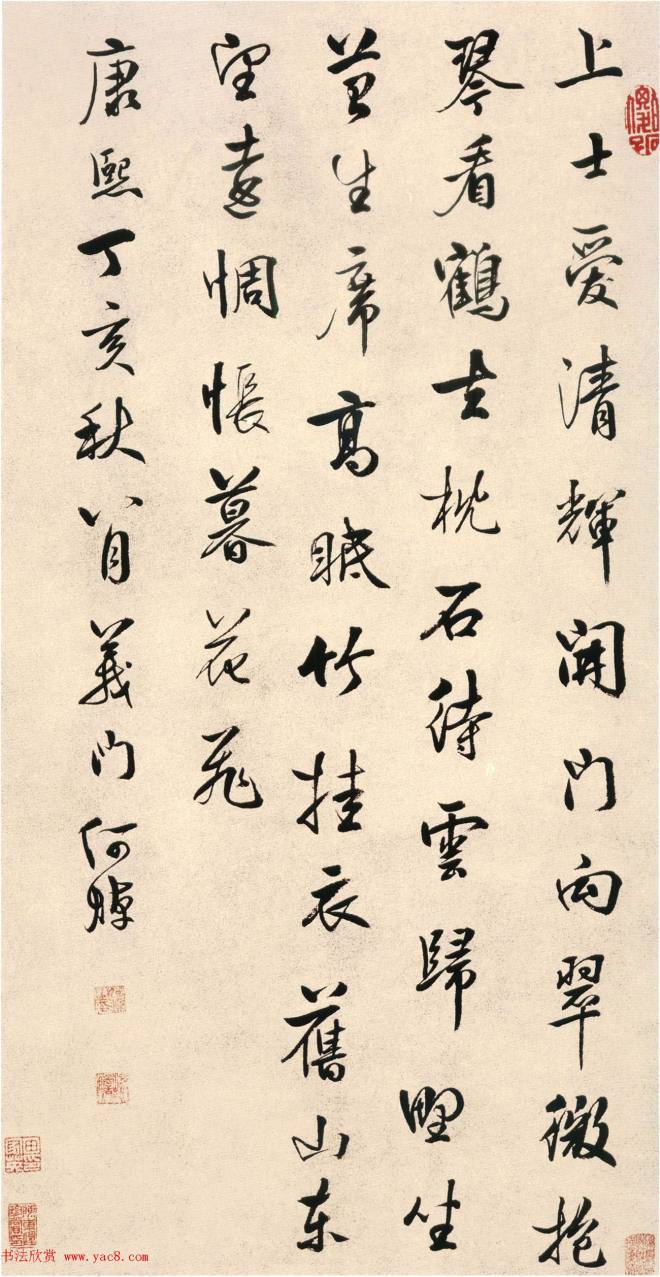 上士愛清輝開門向翠微抱
琴看鶴去枕石待雲歸野坐
苔生席高眠竹挂衣舊山東
望遠惆悵暮花飛
康熙丁亥秋八月義門何焯
书法欣赏 www.yac8.com